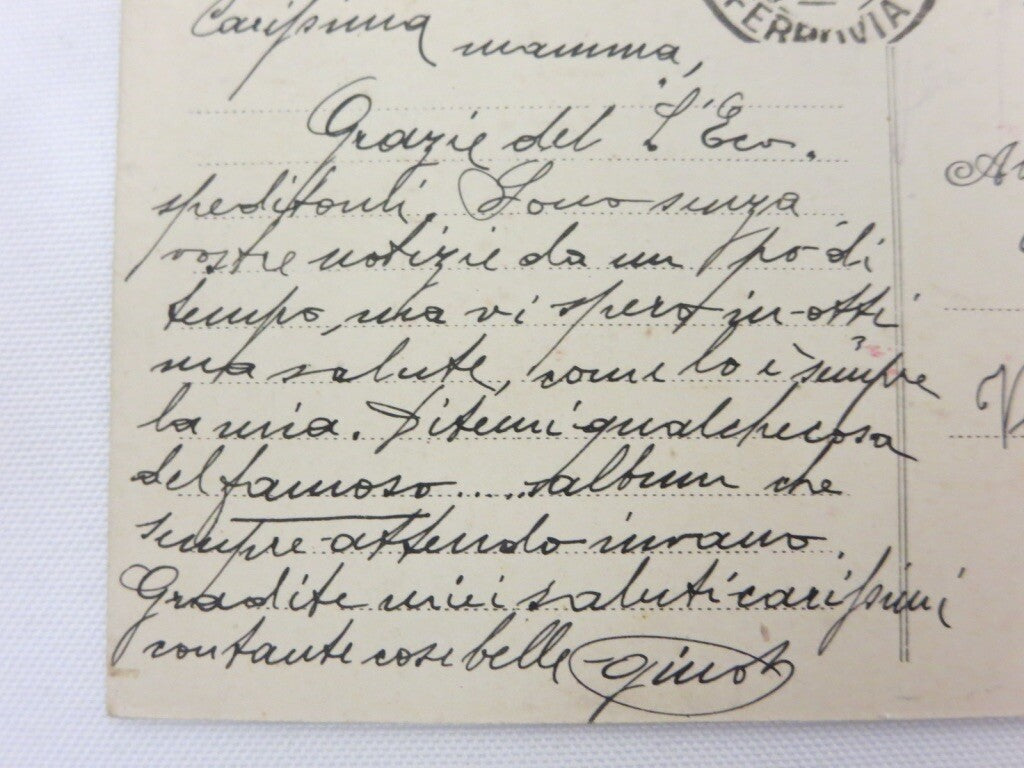 FERROVIA
Carissima
mamma,
Grazie del "L'Eco.
speditomi. Sono senza
vostre notizie da un po' di
tempo, ma vi spero in otti
ma salute, come lo è sempre
la mia. Ditemi qualchecosa
del famoso..... album che
sempre attendo invano.
Gradite miei saluti carissimi
con tante cose belle Gino